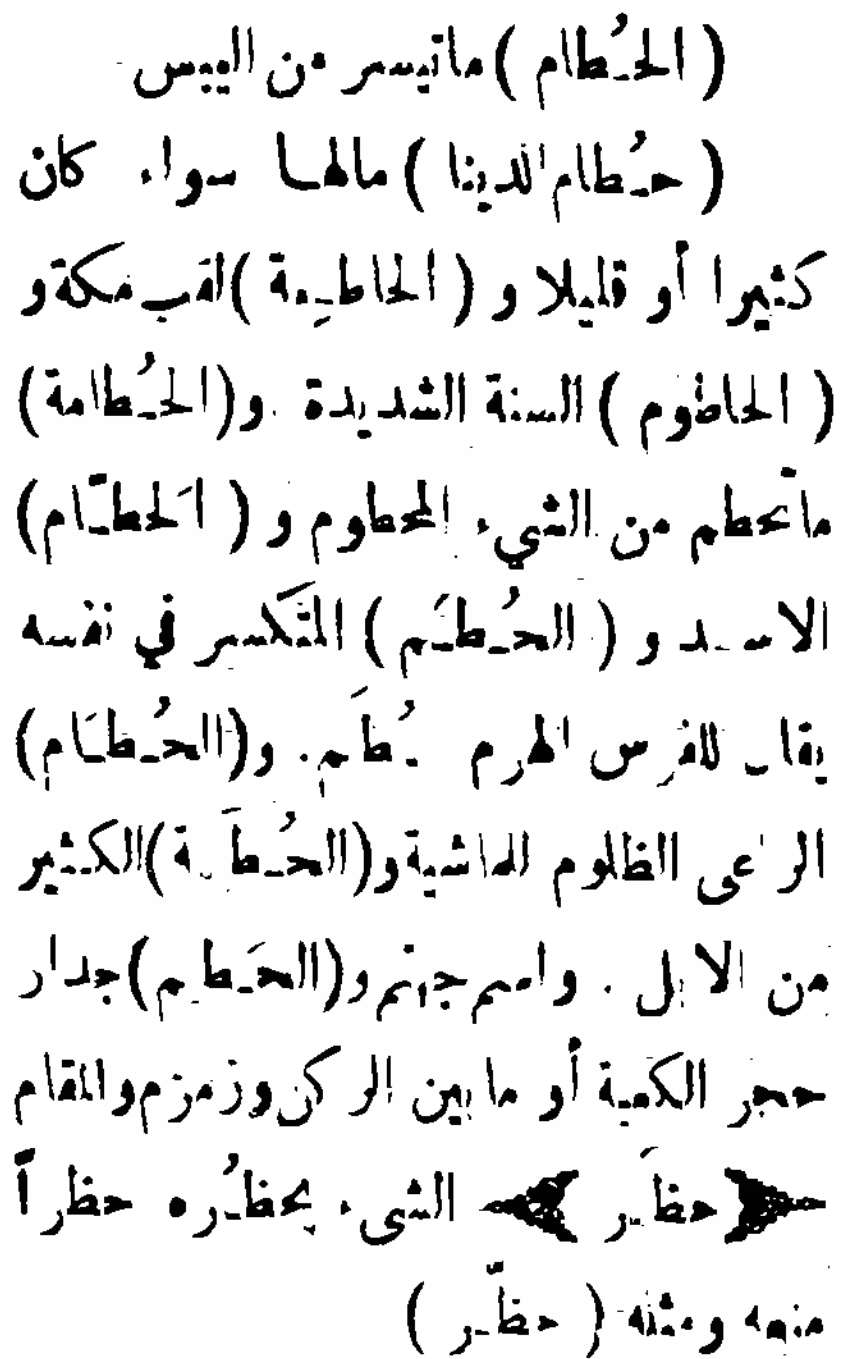 ( الحُطام ) ماتيسر من اليبس
( حُطام الدينا ) مالها سواء كان
كثيرا أو قليلا و ( الحاطِمة ) لقب مكة و
( الحاطوم ) السنة الشديدة . و (الحُطامة)
ماتحطم من الشيء المحطوم و ( الحَطّام)
الاسد و ( الحُطَم ) المتكسر في نفسه
يقال للفرس الهرم حُطَم . و (الحُطَام)
الراعى الظلوم للماشية و (الحُطَمة) الكثير
من الابل . واسم جهنم و (الحَطيم) جدار
حجر الكعبة أو مابين الركن وزمزم والمقام
﴿ حظَر ﴾ الشىء يحظُره حظراً
منعه ومثله ( حظّر )